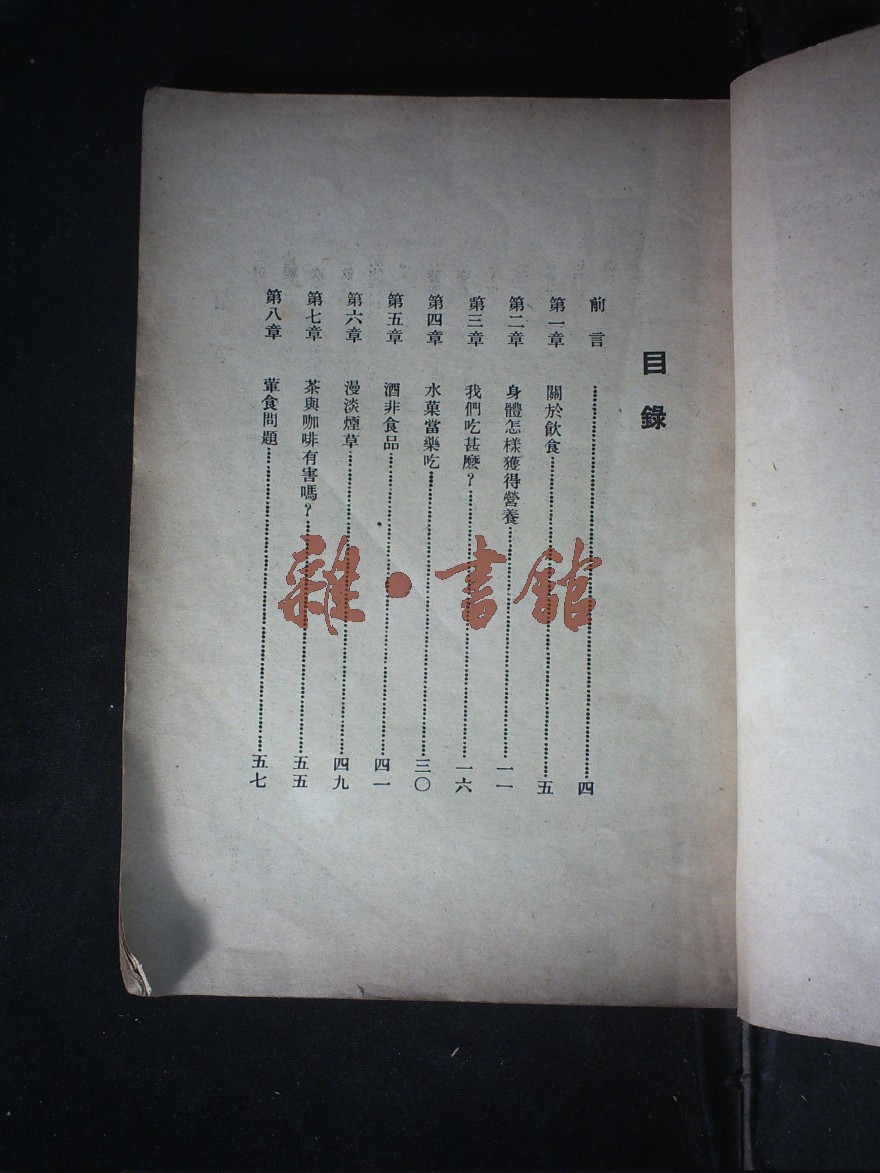 目錄
前言……四
第一章 關於飲食……五
第二章 身體怎樣獲得營養……一一
第三章 我們吃甚麼？……一六
第四章 水菓當藥吃……三〇
第五章 酒非食品……四一
第六章 漫淡煙草……四九
第七章 茶與咖啡有害嗎？……五五
第八章 葷食問題……五七
雜·書館